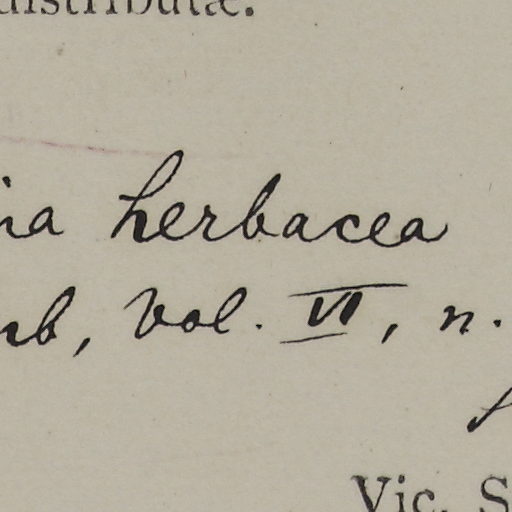 distributæ.
ia herbacea
rb, Vol. VI, n.
Vic. S